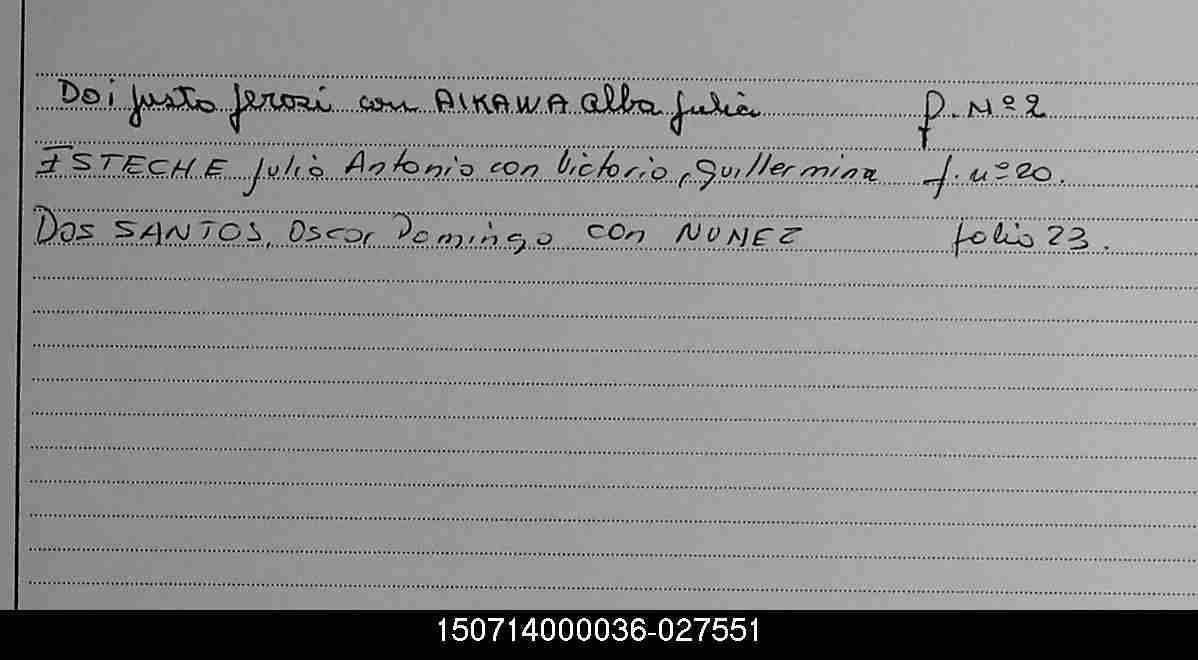 Doi Justo Jerozi con AIKAWA Alba Julia f. Nº 2
ISTECHE Julio Antonio con Victorio, Guillermina f. nº 20.
Dos SANTOS, Oscar Domingo con NUNEZ folio 23.
150714000036-027551